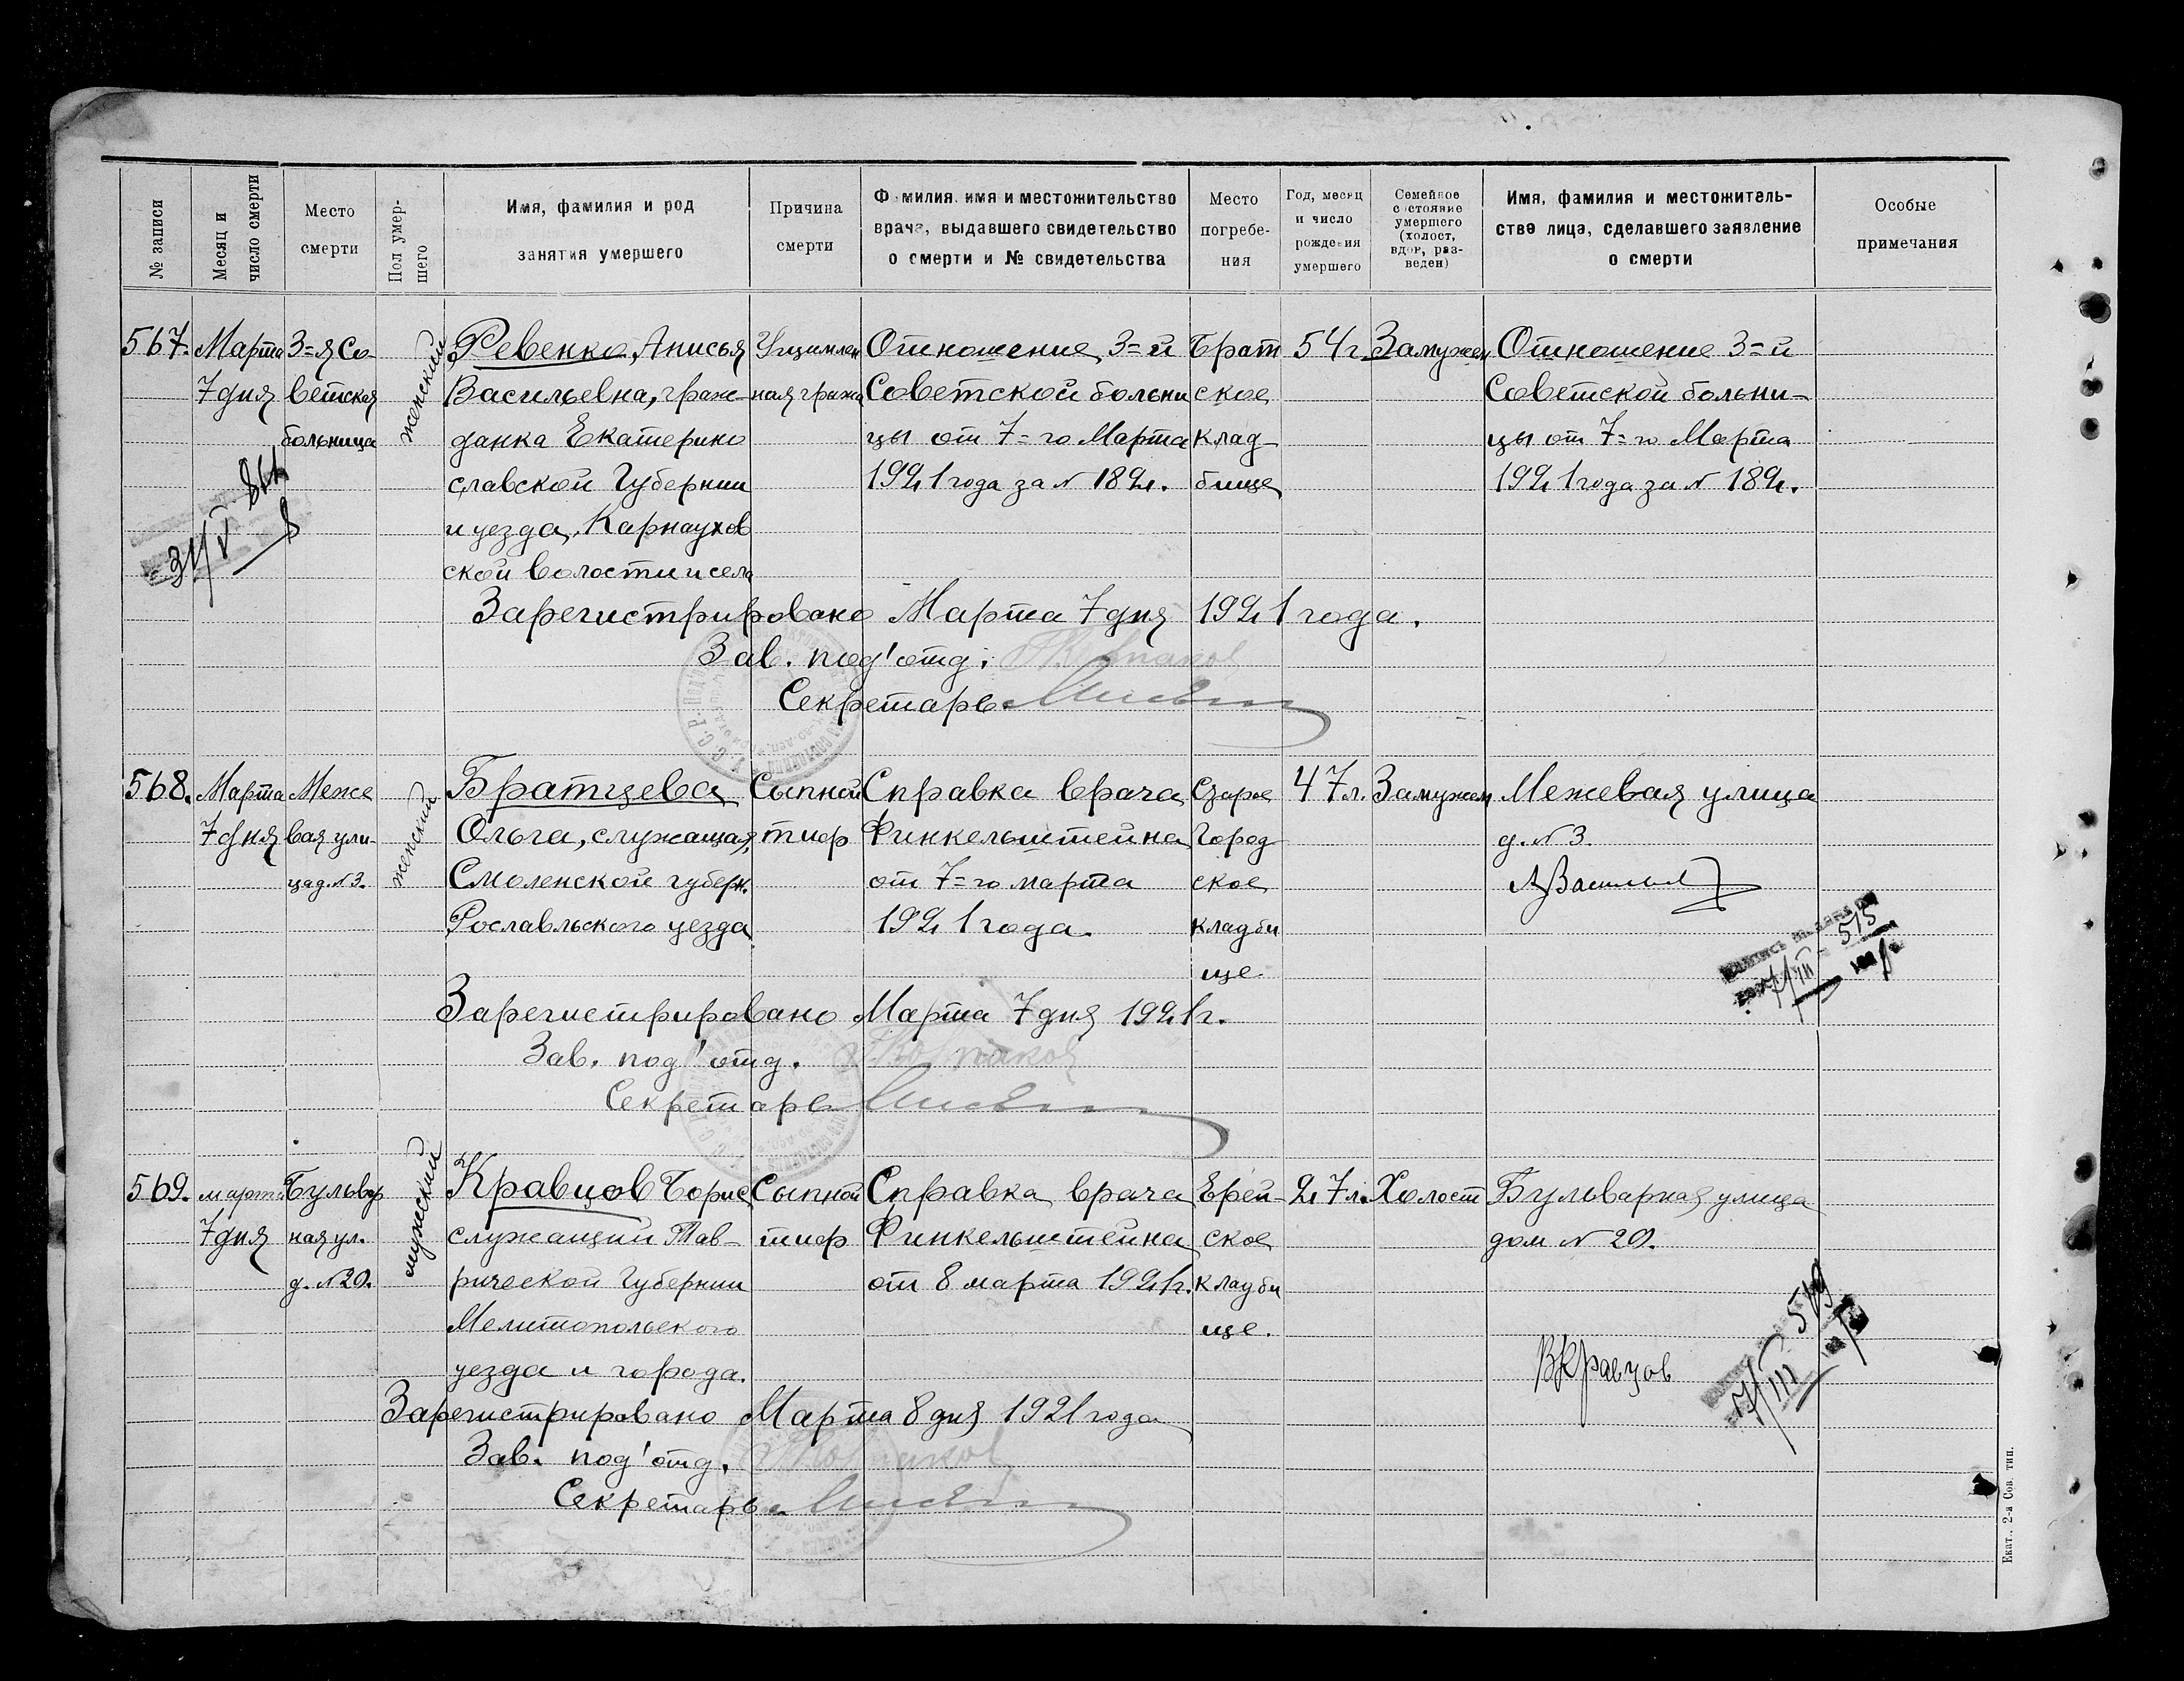 № записи
Месяц и число смерти
Место смерти
Пол умершего
Имя, фамилия и род занятия умершего
Причина смерти
Фамилия, имя и местожительство врача, выдавшего свидетельство о смерти и № свидетельства
Место погребе-ния
Год, месяц и число рождения умершего
Семейное состояние умершего (холост, вдов, раз-веден)
Имя, фамилия и местожитель-ство лица, сделавшего заявление о смерти
Особые примечания
567.
Марта
7 дня
3=я Со
ветская
больница
женский
Ревенко, Анисья
Васильевна, граж-
данка Екатерино
славской Губернии
и уезда, Карнаухов
ской волости и села
Ущемлен
ная грыжа
Отношение 3=й
Советской больни
цы от 7=го Марта
1921 года за № 182.
Брат
ское
клад-
бище
54 г.
Замужем
Отношение 3=й
Советской больни-
цы от 7=го Марта
1921 года за № 182.
31/V
Зарегистрировано Марта 7 дня 1921 года.
Зав. под'отд.
Секретарь
568.
Марта
7 дня
Меже
вая ули-
ца д. №3.
женский
Братцева
Ольга, служащая,
Смоленской губерн.
Рославльского уезда
Сыпной
тиф
Справка врача
Финкельштейна
от 7=го марта
1921 года.
Старое
Город
ское
кладби
ще
47 л.
Замужем
Межевая улица
д. №3.
515
Зарегистрировано Марта 7 дня 1921 г.
Зав. под'отд.
Секретарь
569.
марта
7 дня
Бульвар
ная ул.
д. №20.
мужской
Кравцов Борис
служащий Тав-
рической Губернии
Мелитопольского
уезда и города.
Сыпной
тиф
Справка врача
Финкельштейна
от 8 марта 1921 г.
Еврей-
ское
кладби
ще.
27 л.
Холост
Бульварная улица
дом №20.
ВКравцов
17/III
Зарегистрировано Марта 8 дня 1921 года
Зав. под'отд.
Секретарь
Екат., 2-а Сов. тип.